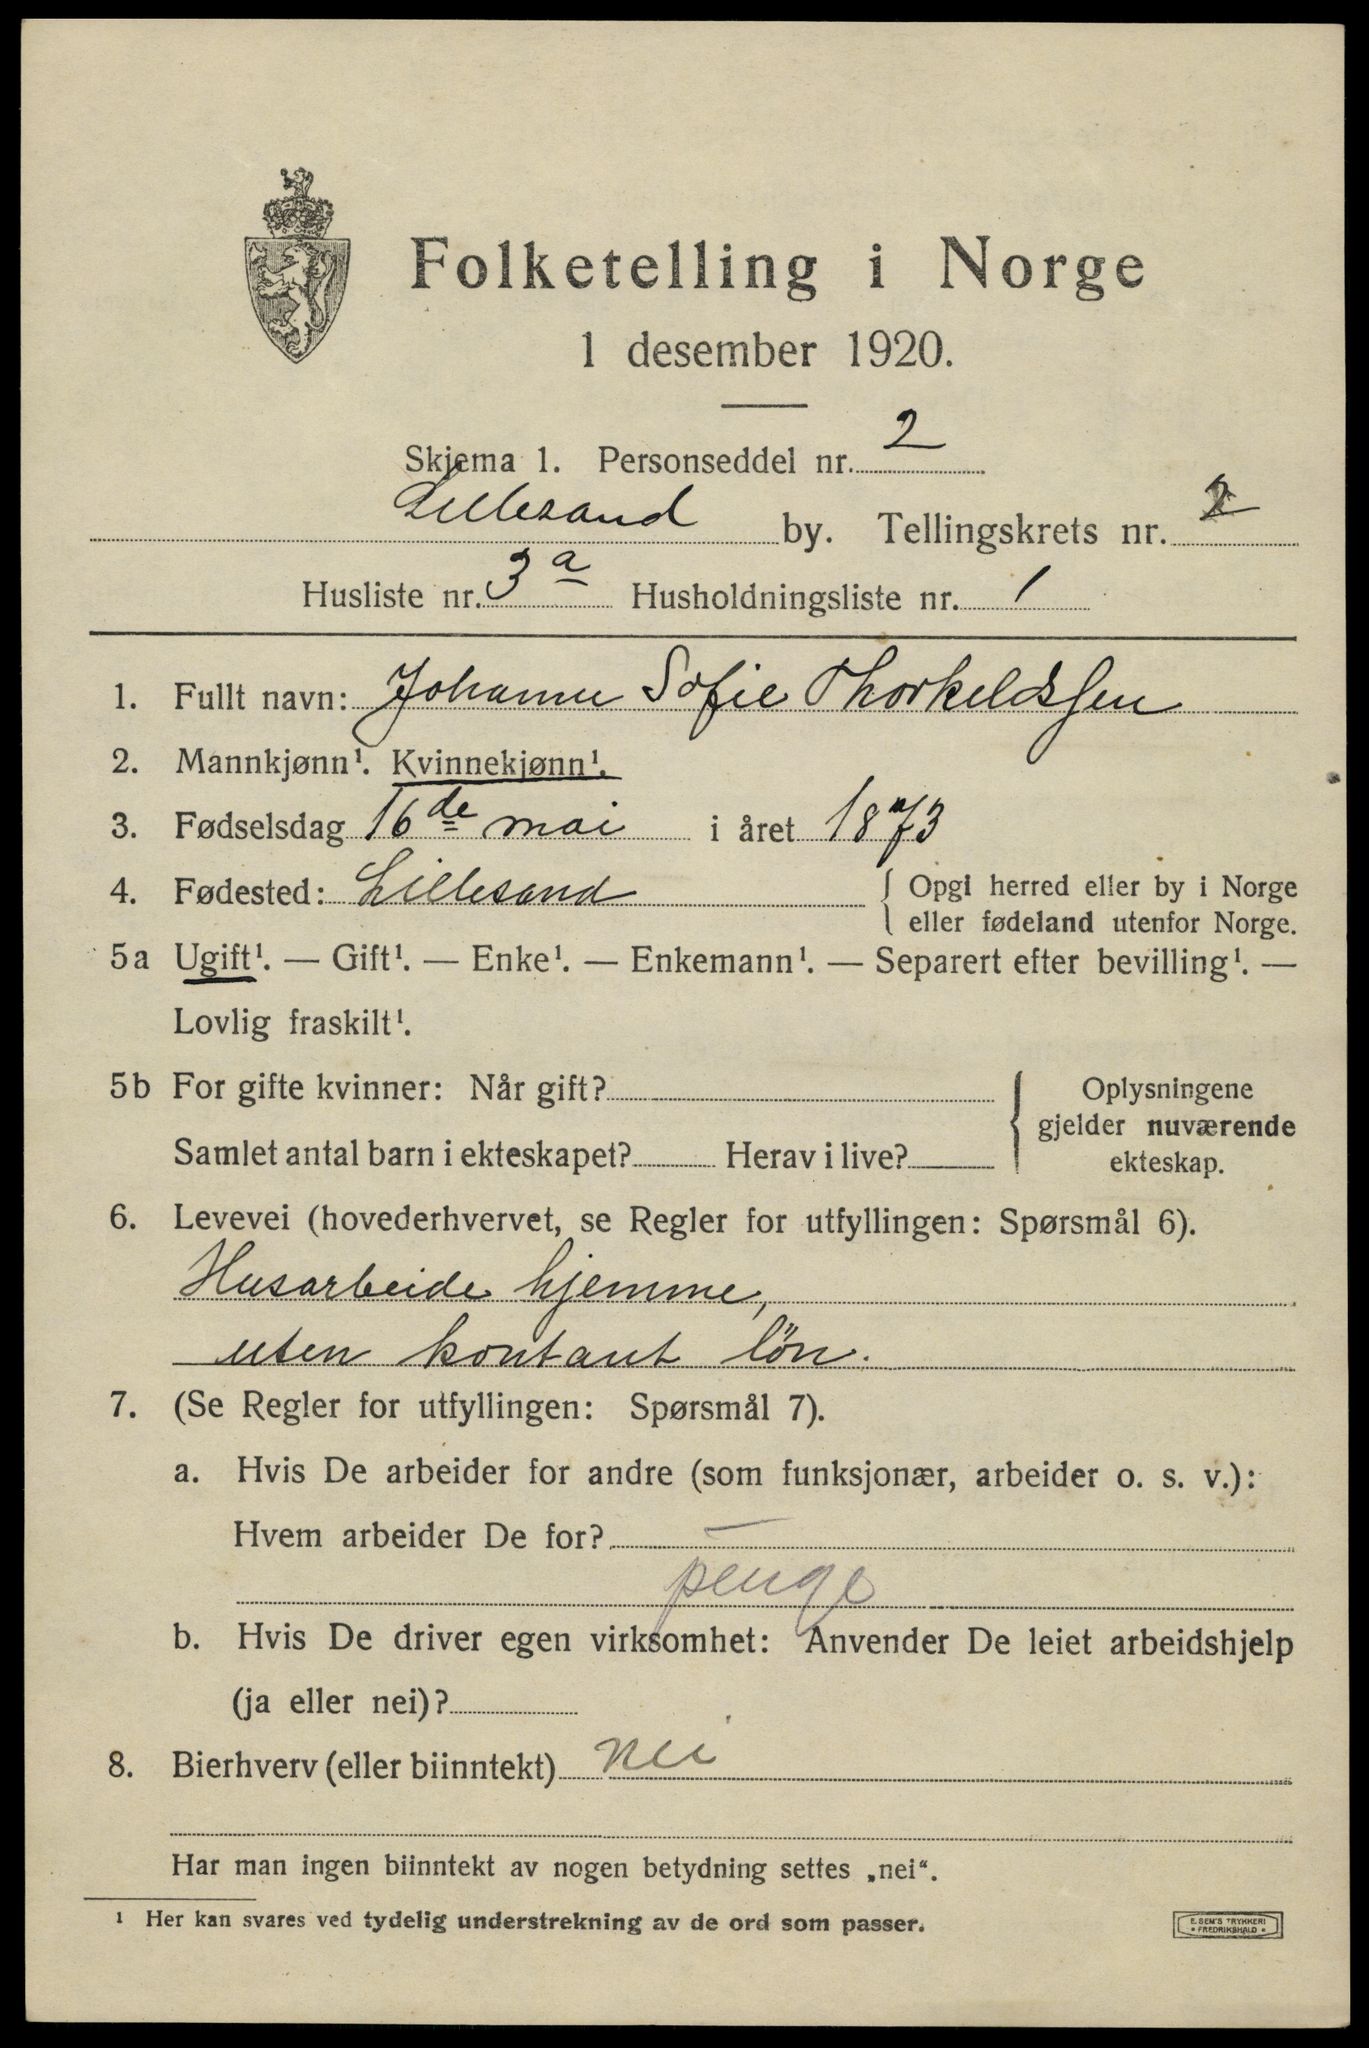 Folketelling i Norge
1 desember 1920.
Skjema 1. Personseddel nr. 2
Lillesand by. Tellingskrets nr. 2
Husliste nr. 3a Husholdningsliste nr. 1
1. Fullt navn: Johanne Sofie Thorkeldssen
2. Mannkjønn¹. Kvinnekjønn¹.
3. Fødselsdag 16de mai i året 1873
4. Fødested: Lillesand { Opgi herred eller by i Norge
eller fødeland utenfor Norge.
5a Ugift¹. — Gift¹. — Enke¹. — Enkemann¹. — Separert efter bevilling¹. —
Lovlig fraskilt¹.
5b For gifte kvinner: Når gift? { Oplysningene
gjelder nuværende
Samlet antal barn i ekteskapet? Herav i live? ekteskap.
6. Levevei (hovederhvervet, se Regler for utfyllingen: Spørsmål 6).
Husarbeide hjemme,
uten kontant lön.
7. (Se Regler for utfyllingen: Spørsmål 7).
a. Hvis De arbeider for andre (som funksjonær, arbeider o. s. v.):
Hvem arbeider De for? —
penge
b. Hvis De driver egen virksomhet: Anvender De leiet arbeidshjelp
(ja eller nei)?
8. Bierhverv (eller biinntekt) nei
Har man ingen biinntekt av nogen betydning settes „nei“.
¹ Her kan svares ved tydelig understrekning av de ord som passer.
E. SEM'S TRYKKERI
• FREDRIKSHALD •